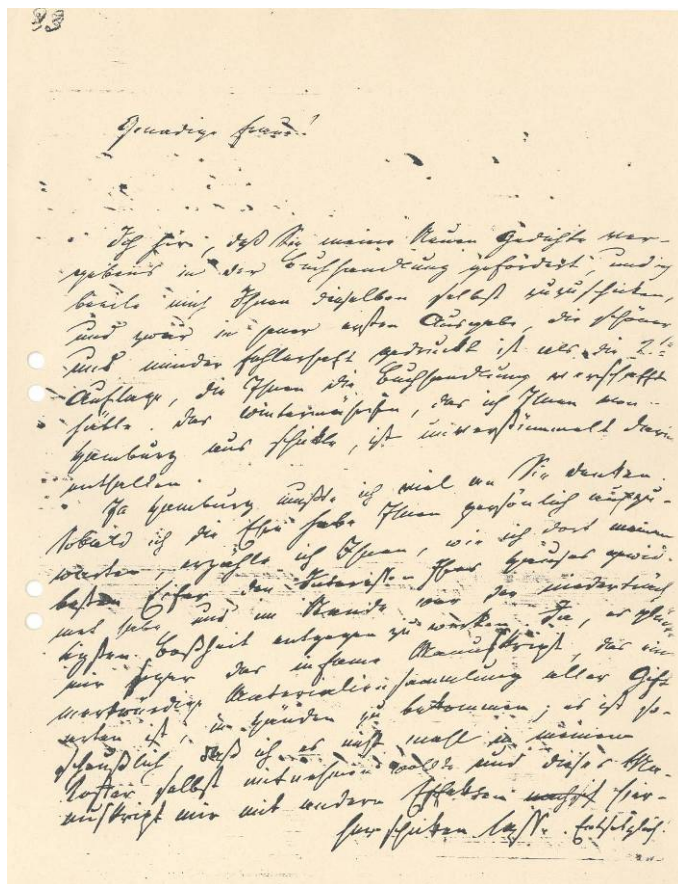 33
Gnädige Frau!
Ich höre, daß Sie meine Neuen Gedichte ver-
gebens in der Buchhandlung gefordert, und ich
beeile mich Ihnen dieselben selbst zuzuschicken,
und zwar in jener ersten Ausgabe, die schöner
und minder fehlerhaft gedruckt ist als die 2te
Auflage, die Ihnen die Buchhandlung verschafft
hätte. Das Wintermährchen, das ich Ihnen von
Hamburg aus schickte, ist unverstümmelt darin
enthalten.
In Hamburg mußte ich viel an Sie denken
Sobald ich die Ehre habe Ihnen persönlich aufzu-
warten, erzähle ich Ihnen, wie ich dort meinen
besten Eifer den Interessen Ihres Hauses gewid-
met habe und im Stande war der niederträch
tigsten Boßheit entgegen zu wirken. Ja, es
mir sogar das infame Manuskript, das eine
merkwürdige Materialiensammlung aller Gift
arten ist, in Händen zu bekommen; es ist so
scheußlich daß ich es nicht mahl in meinem
Koffer selbst mitnehmen wollte und dieses Ma-
nuskript mir mit andern Effekten hier-
her schicken lasse.